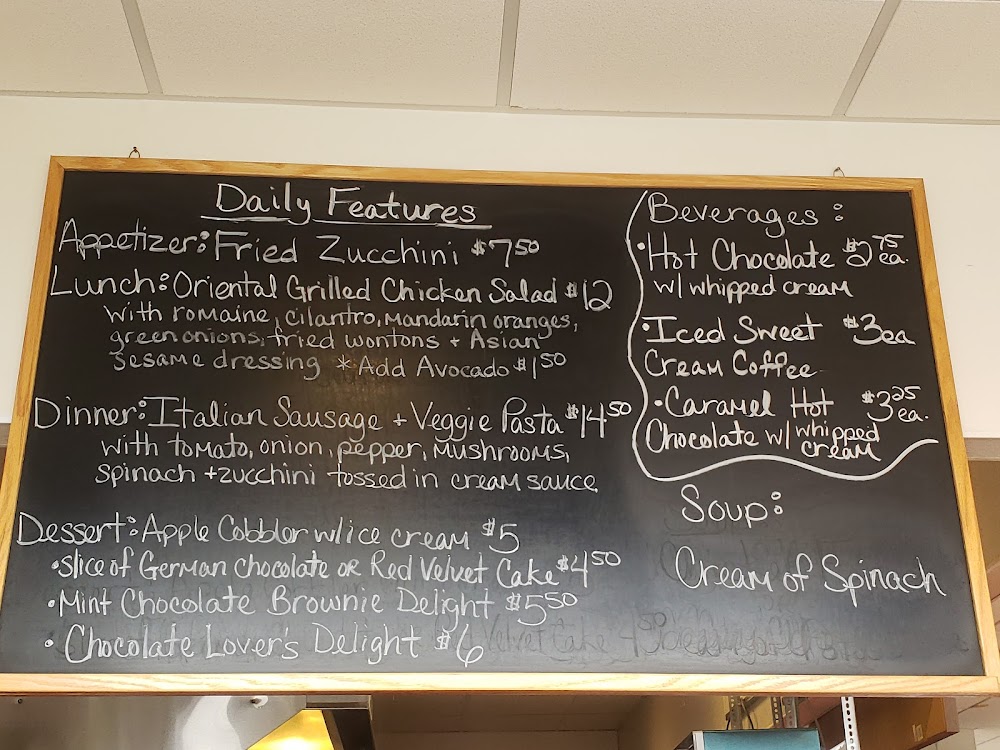 Daily Features
Appetizer: Fried Zucchini $7.50
Lunch: Oriental Grilled Chicken Salad $12
with romaine, cilantro, mandarin oranges,
green onions, fried wontons + Asian
sesame dressing *Add Avocado $1.50
Dinner: Italian Sausage + Veggie Pasta $14.50
with tomato, onion, pepper, mushrooms,
spinach + zucchini tossed in cream sauce
Dessert: Apple Cobbler w/ice cream $5
•slice of German chocolate or Red Velvet Cake $4.50
•Mint Chocolate Brownie Delight $5.50
•Chocolate Lover's Delight $6
Beverages:
•Hot Chocolate $2.75 ea.
w/ whipped cream
•Iced Sweet $3 ea
Cream Coffee
•Caramel Hot $3.25 ea.
Chocolate w/ whipped
cream
Soup:
Cream of Spinach